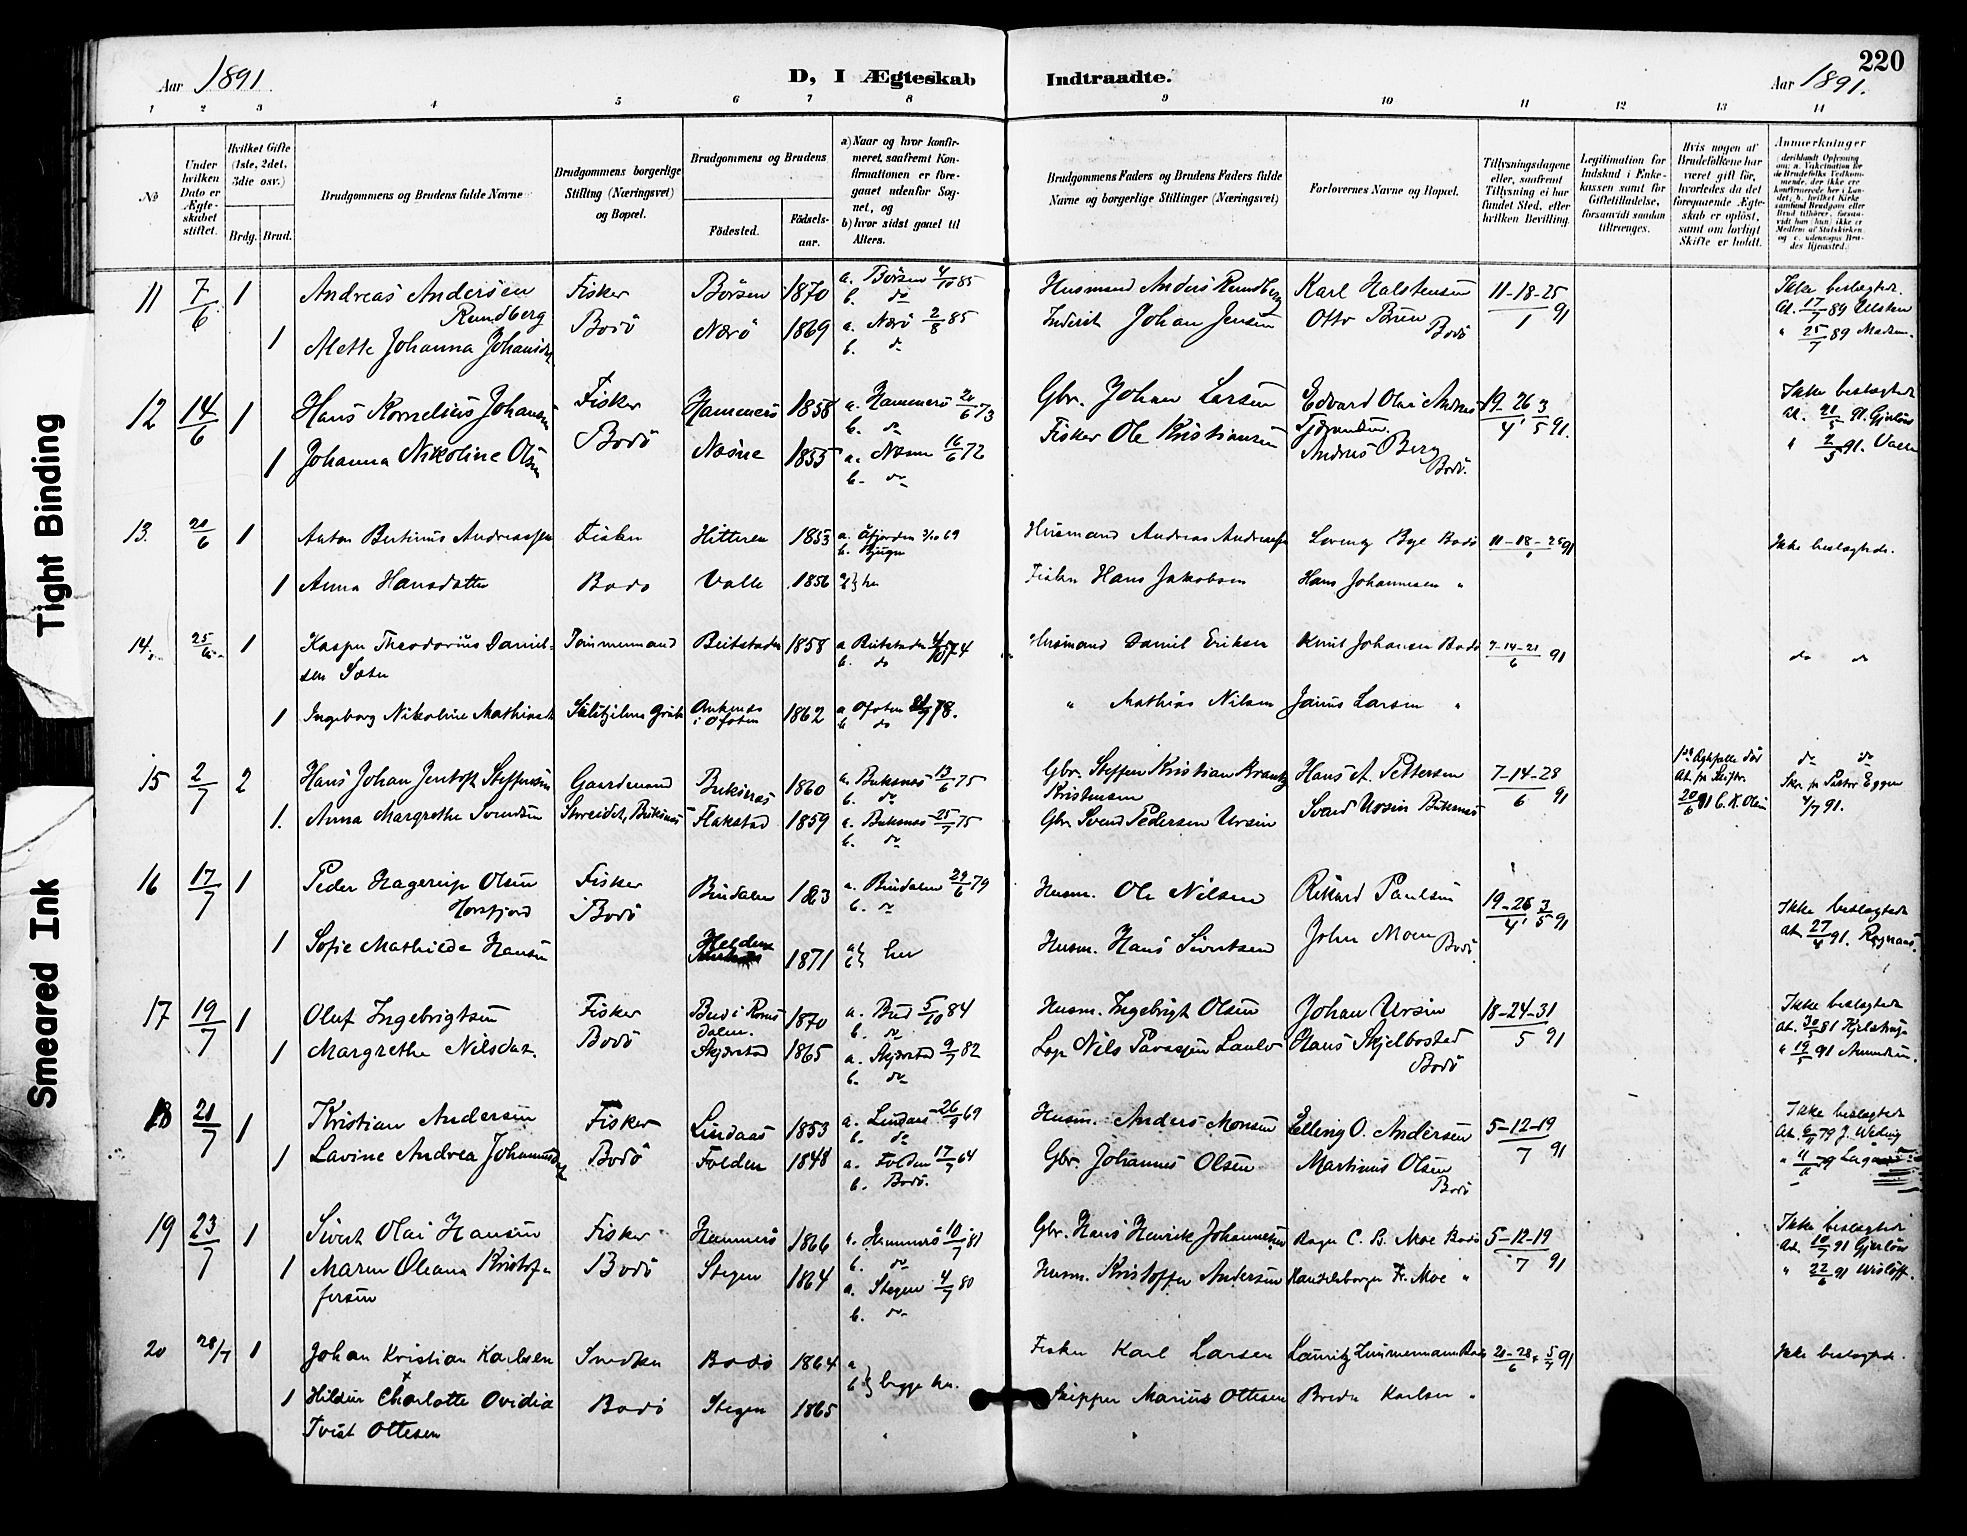 Tight Binding
Smeared Ink
Aar 1891
D, I Ægteskab
Indtraadte.
Aar 1891.
220
1 2 3 4 5 6 7 8 9 10 11 12 13 14
№
Under hvilken Dato er Ægteskabet stiftet.
Hvilket Gifte (1ste, 2det, 3die osv.)
Brdg. Brud.
Brudgommens og Brudens fulde Navne
Brudgommens borgerlige Stilling (Næringsvei) og Bopæl.
Brudgommens og Brudens
Fødested.
Fødsels-aar.
a) Naar og hvor konfirmeret, saafremt Konfirmationen er foregaaet udenfor Sognet, og
b) hvor sidst gaaet til Alters.
Brudgommens Faders og Brudens Faders fulde Navne og borgerlige Stillinger (Næringsvei)
Forlovernes Navne og Bopæl.
Tillysningsdagene eller, saafremt Tillysning ei har fundet Sted, efter hvilken Bevilling.
Legitimation for Indskud i Enkekassen samt for Giftetilladelse, forsaavidt saadan tiltrænges.
Hvis nogen af Brudefolkene har været gift før, hvorledes da det foregaaende Ægteskab er opløst, samt om lovligt Skifte er holdt.
Anmerkninger
11 7/6 1 Andreas Andersen Rundberg Fisker Børsen 1870 a. Børsen 4/10 85 Husmand Anders Rundberg Karl Halstensen 11-18-25 Ikke beslægtede.
b. do At. 17/7 89
1 Mette Johanna Johansdt Bodö Nærö 1869 a. Nærö 2/8 85 Inderst Johan Jensen Otto Brun Bodö 1 91 " 25/7 89 Madsen.
b. do
12 14/6 1 Hans Kornelius Johansen Fisker Hammerö 1858 a. Hammerö 20/6 73 Gbr. Johan Larsen Edvard Olai Andreas 19-26/4 3/5 91. Ikke beslægtede
b. do
1 Johanna Nikoline Olsen Bodö Nesne 1855 a. Nesne 16/6 72 Fisker Ole Kristiansen Andreas Berg Bodö.
b. do
13. 21/6 1 Anton Bertinus Andreassen Fisker Hitteren 1853 a. Åfjorden 3/10 69 Husmand Andreas Andreassen Lorentz Bye Bodö 11-18-25 91 Ikke beslægtede.
b. Bjugn
1 Anna Hansdatter Bodö Valle 1856 her Fisker Hans Jakobsen Hans Johannesen "
14. 25/6 1 Kasper Theodorius Danielsen Sæter Tømmermand Beitstaden 1858 a Beitstaden 74 Husmand Daniel Eriksen Knut Johansen Bodö 7-14-21/6 91 do do
b. do
1 Ingeborg Nikoline Mathiasdt Sulitjelma Grube Ankenes i Ofoten 1862 a Ofoten 78. " Mathias Nilsen Jarius Larsen "
b do
15 2/7 2 Hans Johan Jentoft Steffensen Gaardmand Buksnæs 1860 a. Buksnæs 13/6 75 Gbr. Steffen Kristian Krantz Kristensen Hans A. Pettersen 7-14-28/6 91 do do
b. do
1. Anna Margrethe Svendsen Buksnæs Flakstad 1859 a. Buksnæs 25/7 75 Gbr. Svend Pedersen Ursin Svend Ursin Buksnæs 20/6 91 4/7 91.
b. do
16 17/7 1 Peder Hagerup Olsen Horsfjord Fisker Bindalen 1863 a. Bindalen 29/6 79 Husm. Ole Nilsen Rikard Paulsen 19-26/4 3/5 91 Ikke beslægtede
b. do
1 Sofie Mathilde Hansen Bodö 1871 her Husm. Hans Sivertsen John Moen Bodö. At. 27/4 91.
17 19/7 1 Oluf Ingebrigtsen Fisker Bud i Romsdalen. 1870 a. Bud 5/10 84 Husm. Ingebrigt Olsen Johan Ursin 18-24-31/5 91 Ikke beslægtede
b. do
1 Margrethe Nilsdat. Bodö Skjerstad 1865 a. Skjerstad 9/7 82 Hans Skjelbostad Bodö " 19/5 91
b. do
18 21/7 1 Kristian Andersen Fisker Lindaas 1853 a. Lindaas 26/9 69 Husm. Anders Monsen Elling O. Andersen 5-12-19/7 91 Ikke beslægtede
b. do
1 Lavine Andrea Johannesdt Bodö Folden 1848 a. Folden 17/7 64 Gbr. Johannes Olsen Martinus Olsen Bodö
b. Bodö.
19 23/7 1 Sivert Olai Hansen Fisker Hammerö 1866 a. Hammerö 10/7 81 Gbr. Hans Henrik Johannesen C. B. Moe Bodö 5-12-19/7 91 Ikke beslægtede
b. do At. 10/7 91
1 Maren Oleana Kristoffersen Bodö Stegen 1864 a. Stegen 4/7 80 Husm. Kristoffer Andersen Handelsborger Fr. Moe " " 22/6 91 Wisløff.
b. do
20 28/7 1 Johan Kristian Karlsen Snedker Bodö 1864 a Fisker Karl Larsen Lauritz Zimmermann Bodö 21-28/6, 5/7 91 Ikke beslægtede.
b begge her.
1 Hildur Charlotte Ovidia Tvist Ottesen Bodö Stegen 1865 Skipper Marius Ottesen Karlsen "